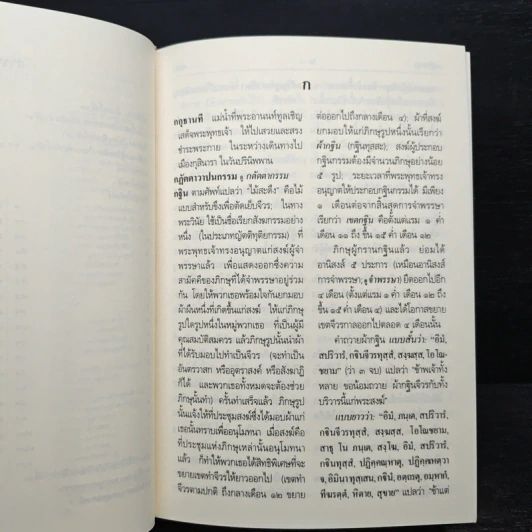 ก
กกุธานที แม่น้ำที่พระอานนท์ทูลเชิญ
เสด็จพระพุทธเจ้า ให้ไปเสวยและสรง
ชำระพระกาย ในระหว่างเดินทางไป
เมืองกุสินารา ในวันปรินิพพาน
กฎัตตาวาปนกรรม ดู กตัตตากรรม
กฐิน ตามศัพท์แปลว่า “ไม้สะดึง” คือไม้
แบบสำหรับขึงเพื่อตัดเย็บจีวร; ในทาง
พระวินัย ใช้เป็นชื่อเรียกสังฆกรรมอย่าง
หนึ่ง (ในประเภทญัตติทุติยกรรม) ที่
พระพุทธเจ้าทรงอนุญาตแก่สงฆ์ผู้จำ
พรรษาแล้ว เพื่อแสดงออกซึ่งความ
สามัคคีของภิกษุที่ได้จำพรรษาอยู่ร่วม
กัน โดยให้พวกเธอพร้อมใจกันยกมอบ
ผ้าผืนหนึ่งที่เกิดขึ้นแก่สงฆ์ ให้แก่ภิกษุ
รูปใดรูปหนึ่งในหมู่พวกเธอ ที่เป็นผู้มี
คุณสมบัติสมควร แล้วภิกษุรูปนั้นนำผ้า
ที่ได้รับมอบไปทำเป็นจีวร (จะทำเป็น
อันตรวาสก หรืออุตราสงค์ หรือสังฆาฏิ
ก็ได้ และพวกเธอทั้งหมดจะต้องช่วย
ภิกษุนั้นทำ) ครั้นทำเสร็จแล้ว ภิกษุรูป
นั้นแจ้งให้ที่ประชุมสงฆ์ซึ่งได้มอบผ้าแก่
เธอนั้นทราบเพื่ออนุโมทนา เมื่อสงฆ์คือ
ที่ประชุมแห่งภิกษุเหล่านั้นอนุโมทนา
แล้ว ก็ทำให้พวกเธอได้สิทธิพิเศษที่จะ
ขยายเขตทำจีวรให้ยาวออกไป (เขตทำ
จีวรตามปกติ ถึงกลางเดือน ๑๒ ขยาย
ต่อออกไปถึงกลางเดือน ๔); ผ้าที่สงฆ์
ยกมอบให้แก่ภิกษุรูปหนึ่งนั้นเรียกว่า
ผ้ากฐิน (กฐินทุสสะ); สงฆ์ผู้ประกอบ
กฐินกรรมต้องมีจำนวนภิกษุอย่างน้อย
๕ รูป; ระยะเวลาที่พระพุทธเจ้าทรง
อนุญาตให้ประกอบกฐินกรรมได้ มีเพียง
๑ เดือนต่อจากสิ้นสุดการจำพรรษา
เรียกว่า เขตกฐิน คือตั้งแต่แรม ๑ ค่ำ
เดือน ๑๑ ถึง ขึ้น ๑๕ ค่ำ เดือน ๑๒
ภิกษุผู้กรานกฐินแล้ว ย่อมได้
อานิสงส์ ๕ ประการ (เหมือนอานิสงส์
การจำพรรษา; ดู จำพรรษา) ยืดออกไปอีก
๔ เดือน (ตั้งแต่แรม ๑ ค่ำ เดือน ๑๒ ถึง
ขึ้น ๑๕ ค่ำ เดือน ๔) และได้โอกาสขยาย
เขตจีวรกาลออกไปตลอด ๔ เดือนนั้น
คำถวายผ้ากฐิน แบบสั้นว่า: “อิมํ,
สปริวารํ, กฐินจีวรทุสฺสํ, สงฺฆสฺส, โอโณ-
ชยาม” (ว่า ๓ จบ) แปลว่า “ข้าพเจ้าทั้ง
หลาย ขอน้อมถวาย ผ้ากฐินจีวรกับทั้ง
บริวารนี้แก่พระสงฆ์”
แบบยาวว่า: “อิมํ, ภนฺเต, สปริวารํ,
กฐินจีวรทุสฺสํ, สงฺฆสฺส, โอโณชยาม,
สาธุ โน ภนฺเต, สงฺโฆ, อิมํ, สปริวารํ,
กฐินทุสฺสํ, ปฏิคฺคณฺหาตุ, ปฏิคฺคเหตฺวา
จ, อิมินา ทุสฺเสน, กฐินํ, อตฺถรตุ, อมฺหากํ,
ทีฆรตฺตํ, หิตาย, สุขาย” แปลว่า “ข้าแต่